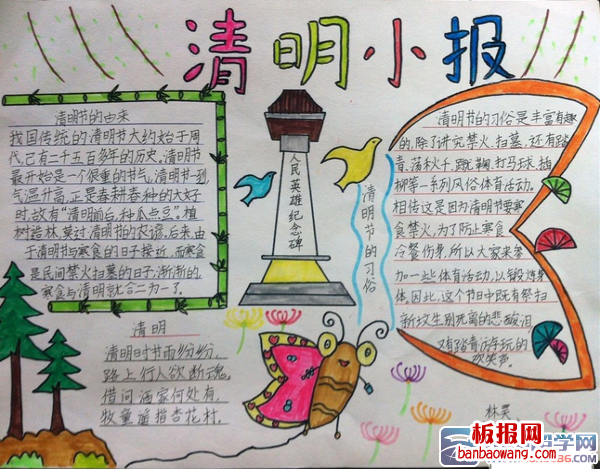 清明小报
清明节的由来
我国传统的清明节大约始于周
代,已有二千五百多年的历史,清明节
最开始是一个很重的节气,清明节一到,
气温升高,正是春耕春种的大好
时,故有“清明前后,种瓜点豆”。植
树造林,莫过清明的农谚,后来,由
于清明与寒食的日子接近,而寒食
是民间禁火扫墓的日子,渐渐的,
寒食与清明就合二为一了。
清明
清明时节雨纷纷,
路上行人欲断魂,
借问酒家何处有,
牧童遥指杏花村。
人民英雄纪念碑
清明节的习俗
清明节的习俗是丰富有趣
的,除了讲究禁火、扫墓,还有踏
青、荡秋千、蹴鞠、打马球、插
柳等一系列风俗体育活动。
相传这是因为清明节要寒
食禁火,为了防止寒食
冷餐伤身,所以大家来参
加一些体育活动,以锻炼身
体,因此,这个节中既有祭扫
新坟生别死离的悲酸泪,
又有踏青游玩的
欢笑声。
林昊
板报网
banbaowang.com